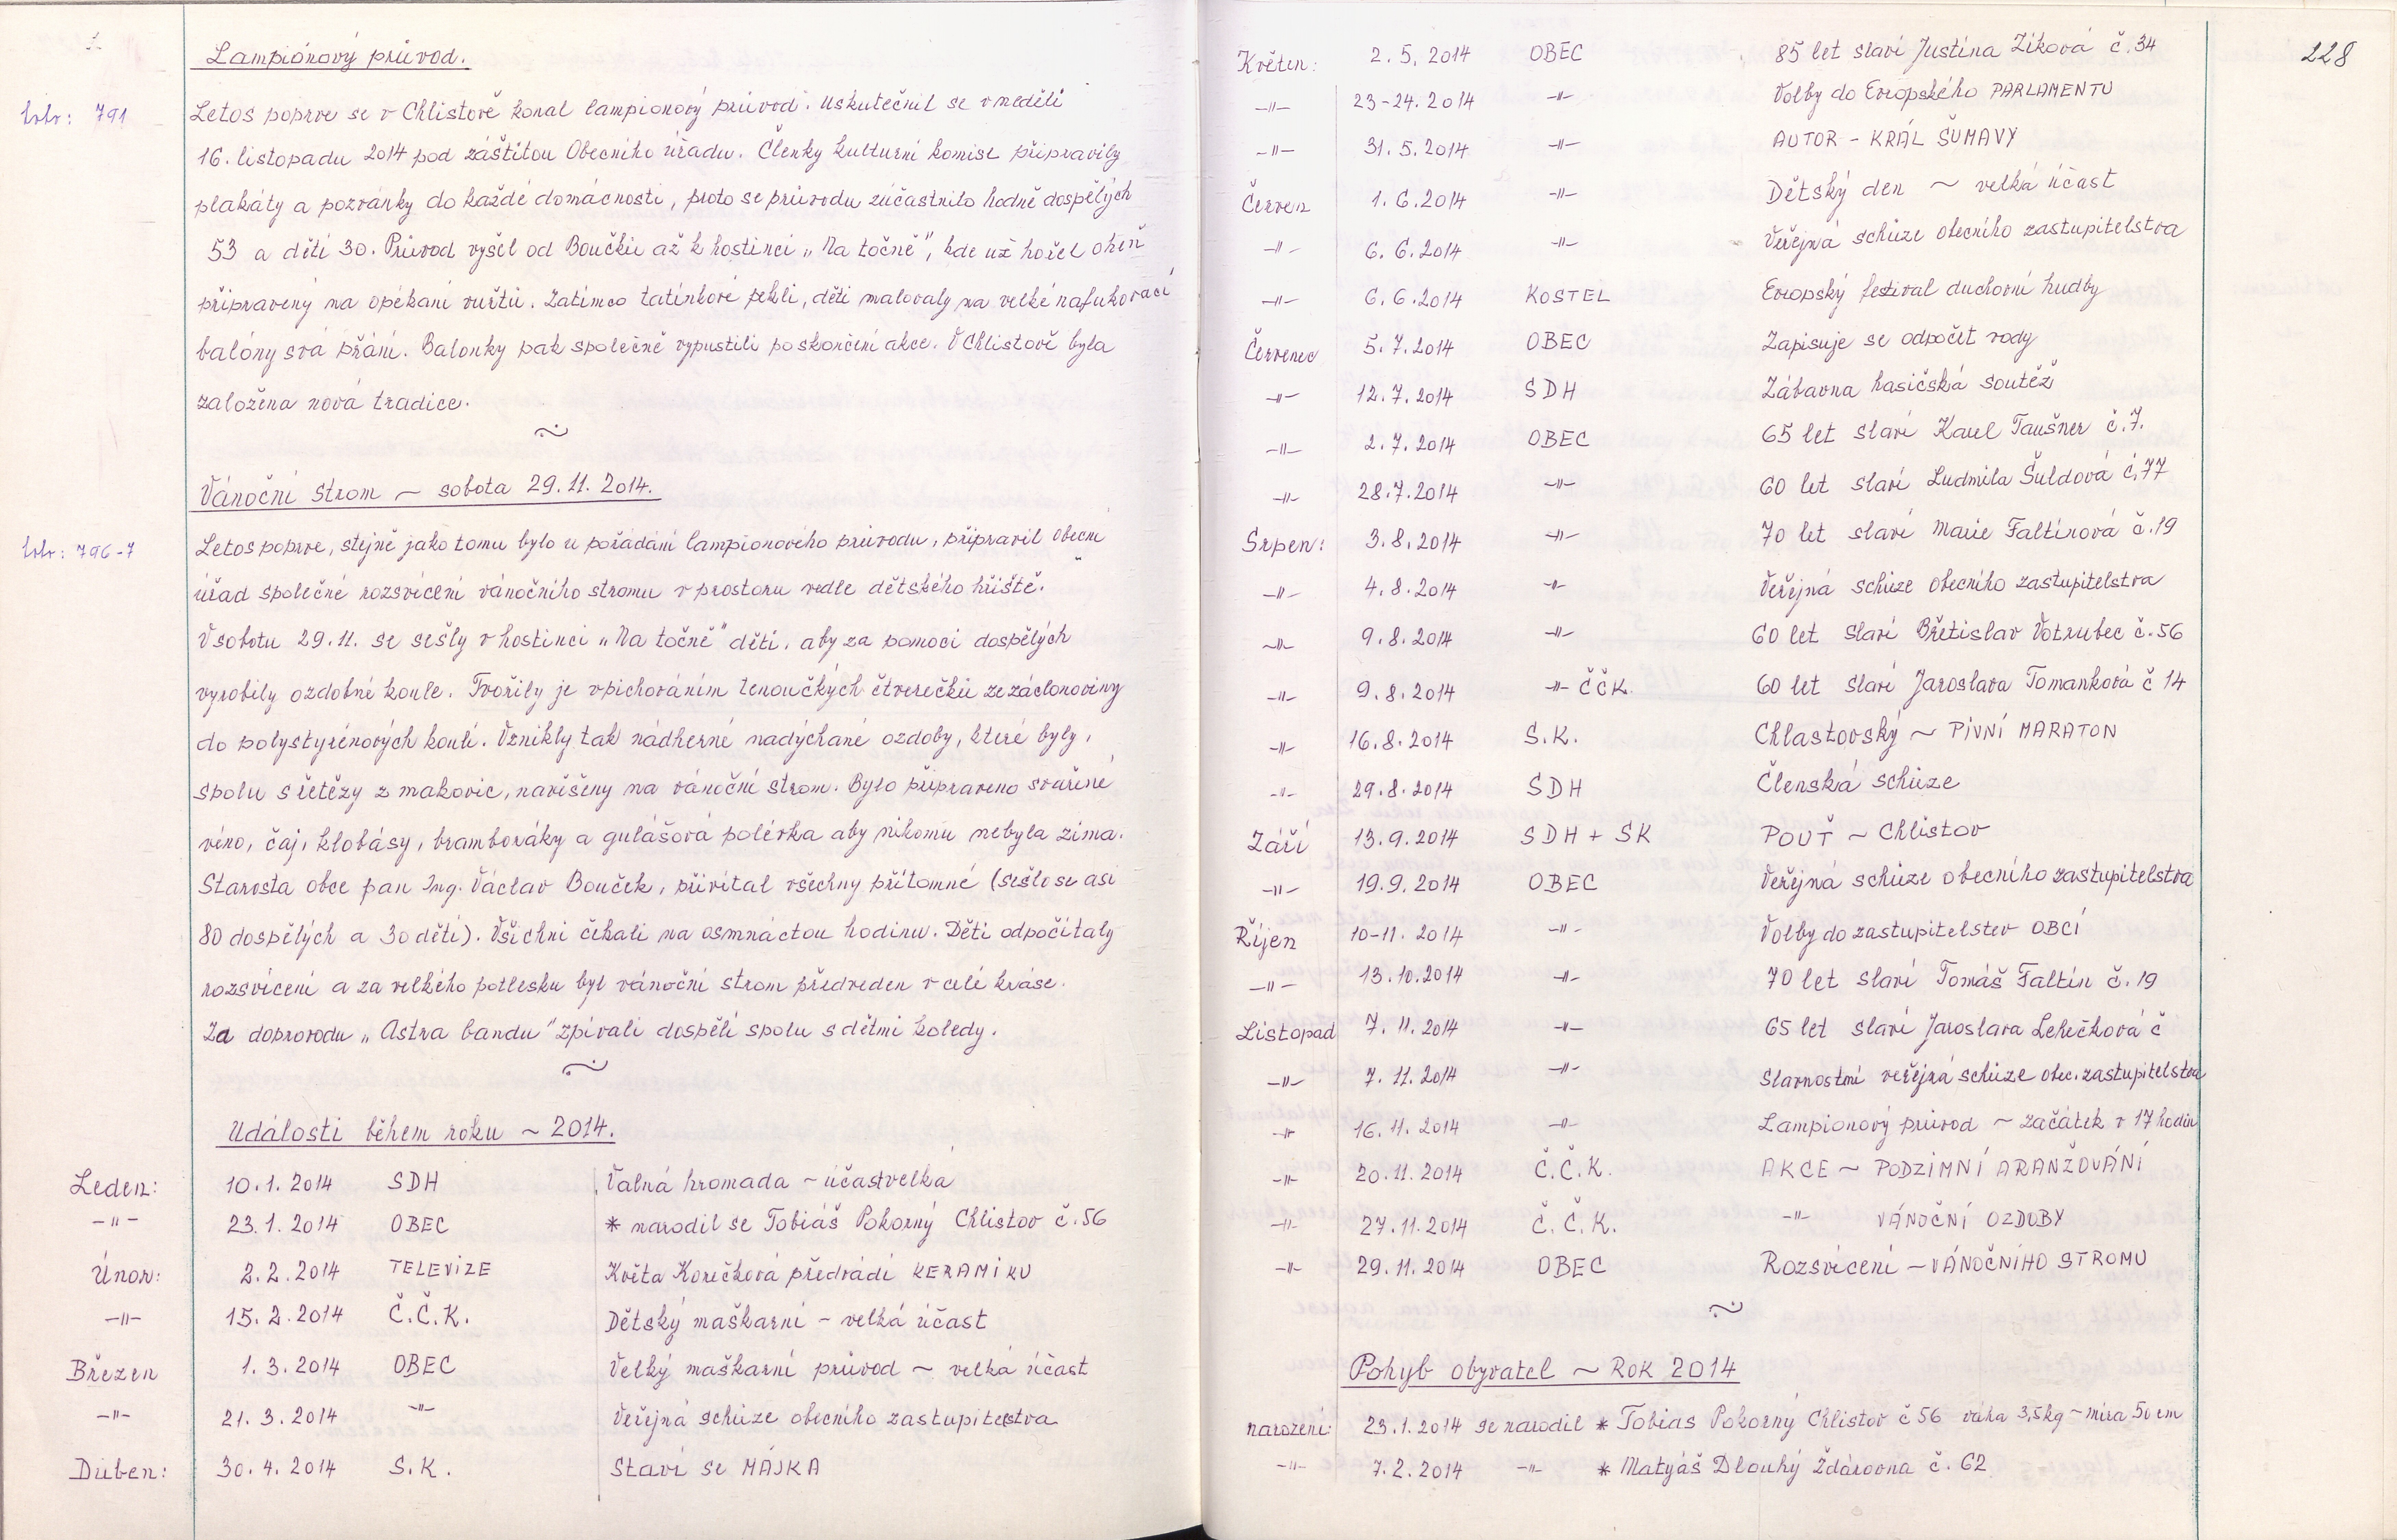 Lampiónový průvod.
lolr: 791
Letos poprve se v Chlistově konal lampionový průvod. Uskutečnil se v neděli
16. listopadu 2014 pod záštitou Obecního úřadu. Členky kulturní komise připravily
plakáty a pozvánky do každé domácnosti, proto se průvodu zúčastnilo hodně dospělých
53 a dětí 30. Průvod vyšel od Boučků až k hostinci „Na točně", kde už hořel oheň
připravený na opékaní vuřtů. Zatímco tatínkové pekli, děti malovaly na velké nafukovací
balóny svá přání. Balonky pak společně vypustili po skončení akce. V Chlistově byla
založena nová tradice.
Vánoční strom ~ sobota 29.11.2014.
lolr: 796-7
Letos poprve, stejně jako tomu bylo u pořádání lampionového průvodu, připravil Obecní
úřad společné rozsvícení vánočního stromu v prostoru vedle dětského hřiště.
V sobotu 29.11. se sešly v hostinci „Na točně" děti, aby za pomoci dospělých
vyrobily ozdobné koule. Tvořily je vpichováním tenoučkých čtverečků ze záclonoviny
do polystyrénových koulí. Vznikly tak nádherné nadýchané ozdoby, které byly,
spolu s řetězy z makovic, navěšeny na vánoční strom. Bylo připraveno svařené
víno, čaj, klobásy, bramboráky a gulášová polévka aby nikomu nebyla zima.
Starosta obce pan Ing. Václav Bouček, přivítal všechny přítomné (sešlo se asi
80 dospělých a 30 dětí). Všichni čekali na osmnáctou hodinu. Děti odpočítaly
rozsvícení a za velkého potlesku byl vánoční strom předveden v celé kráse.
Za doprovodu „Astra bandu" zpívali dospělí spolu s dětmi koledy.
Události během roku ~ 2014.
Leden: 10.1.2014 SDH Valná hromada - účast velká
-"- 23.1.2014 OBEC * narodil se Tobiáš Pokorný Chlistov č.56
Únor: 2.2.2014 TELEVIZE Květa Korečková předvádí KERAMIKU
-"- 15.2.2014 Č.Č.K. Dětský maškarní - velká účast
Březen 1.3.2014 OBEC Velký maškarní průvod ~ velká účast
-"- 21.3.2014 -"- Veřejná schůze obecního zastupitelstva
Duben: 30.4.2014 S.K. Staví se MÁJKA
228
Květen: 2.5.2014 OBEC 85 let slaví Justina Ziková č.34
-"- 23-24.2014 -"- Volby do Evropského PARLAMENTU
-"- 31.5.2014 -"- AUTOR - KRÁL ŠUMAVY
Červen 1.6.2014 -"- Dětský den ~ velká účast
-"- 6.6.2014 -"- Veřejná schůze obecního zastupitelstva
-"- 6.6.2014 KOSTEL Evropský festival duchovní hudby
Červenec 5.7.2014 OBEC Zapisuje se odpočet vody
-"- 12.7.2014 SDH Zábavna hasičská soutěž
-"- 2.7.2014 OBEC 65 let slaví Karel Taušner č.7.
-"- 28.7.2014 -"- 60 let slaví Ludmila Šuldová č.77
Srpen: 3.8.2014 -"- 70 let slaví Marie Faltínová č.19
-"- 4.8.2014 -"- Veřejná schůze obecního zastupitelstva
-"- 9.8.2014 -"- 60 let slaví Břetislav Votrubec č.56
-"- 9.8.2014 -"- ČČK. 60 let slaví Jaroslava Tomanková č 14
-"- 16.8.2014 S.K. Chlastovský ~ PIVNÍ MARATON
-"- 29.8.2014 SDH Členská schůze
Září 13.9.2014 SDH + SK POUŤ ~ Chlistov
-"- 19.9.2014 OBEC Veřejná schůze obecního zastupitelstva
Říjen 10-11.2014 -"- Volby do zastupitelstev OBCÍ
-"- 13.10.2014 -"- 70 let slaví Tomáš Faltín č.19
Listopad 7.11.2014 -"- 65 let slaví Jaroslava Lehečková č
-"- 7.11.2014 -"- Slavnostní veřejná schůze obec. zastupitelstva
-"- 16.11.2014 -"- Lampionový průvod ~ začátek v 17 hodin
-"- 20.11.2014 Č.Č.K. AKCE ~ PODZIMNÍ ARANŽOVÁNÍ
-"- 27.11.2014 Č.Č.K. -"- VÁNOČNÍ OZDOBY
-"- 29.11.2014 OBEC Rozsvícení - VÁNOČNÍHO STROMU
Pohyb obyvatel ~ ROK 2014
narození: 23.1.2014 se narodil * Tobias Pokorný Chlistov č 56 váha 3,5kg - míra 50 cm
-"- 7.2.2014 -"- * Matyáš Dlouhý Žďárovna č.62